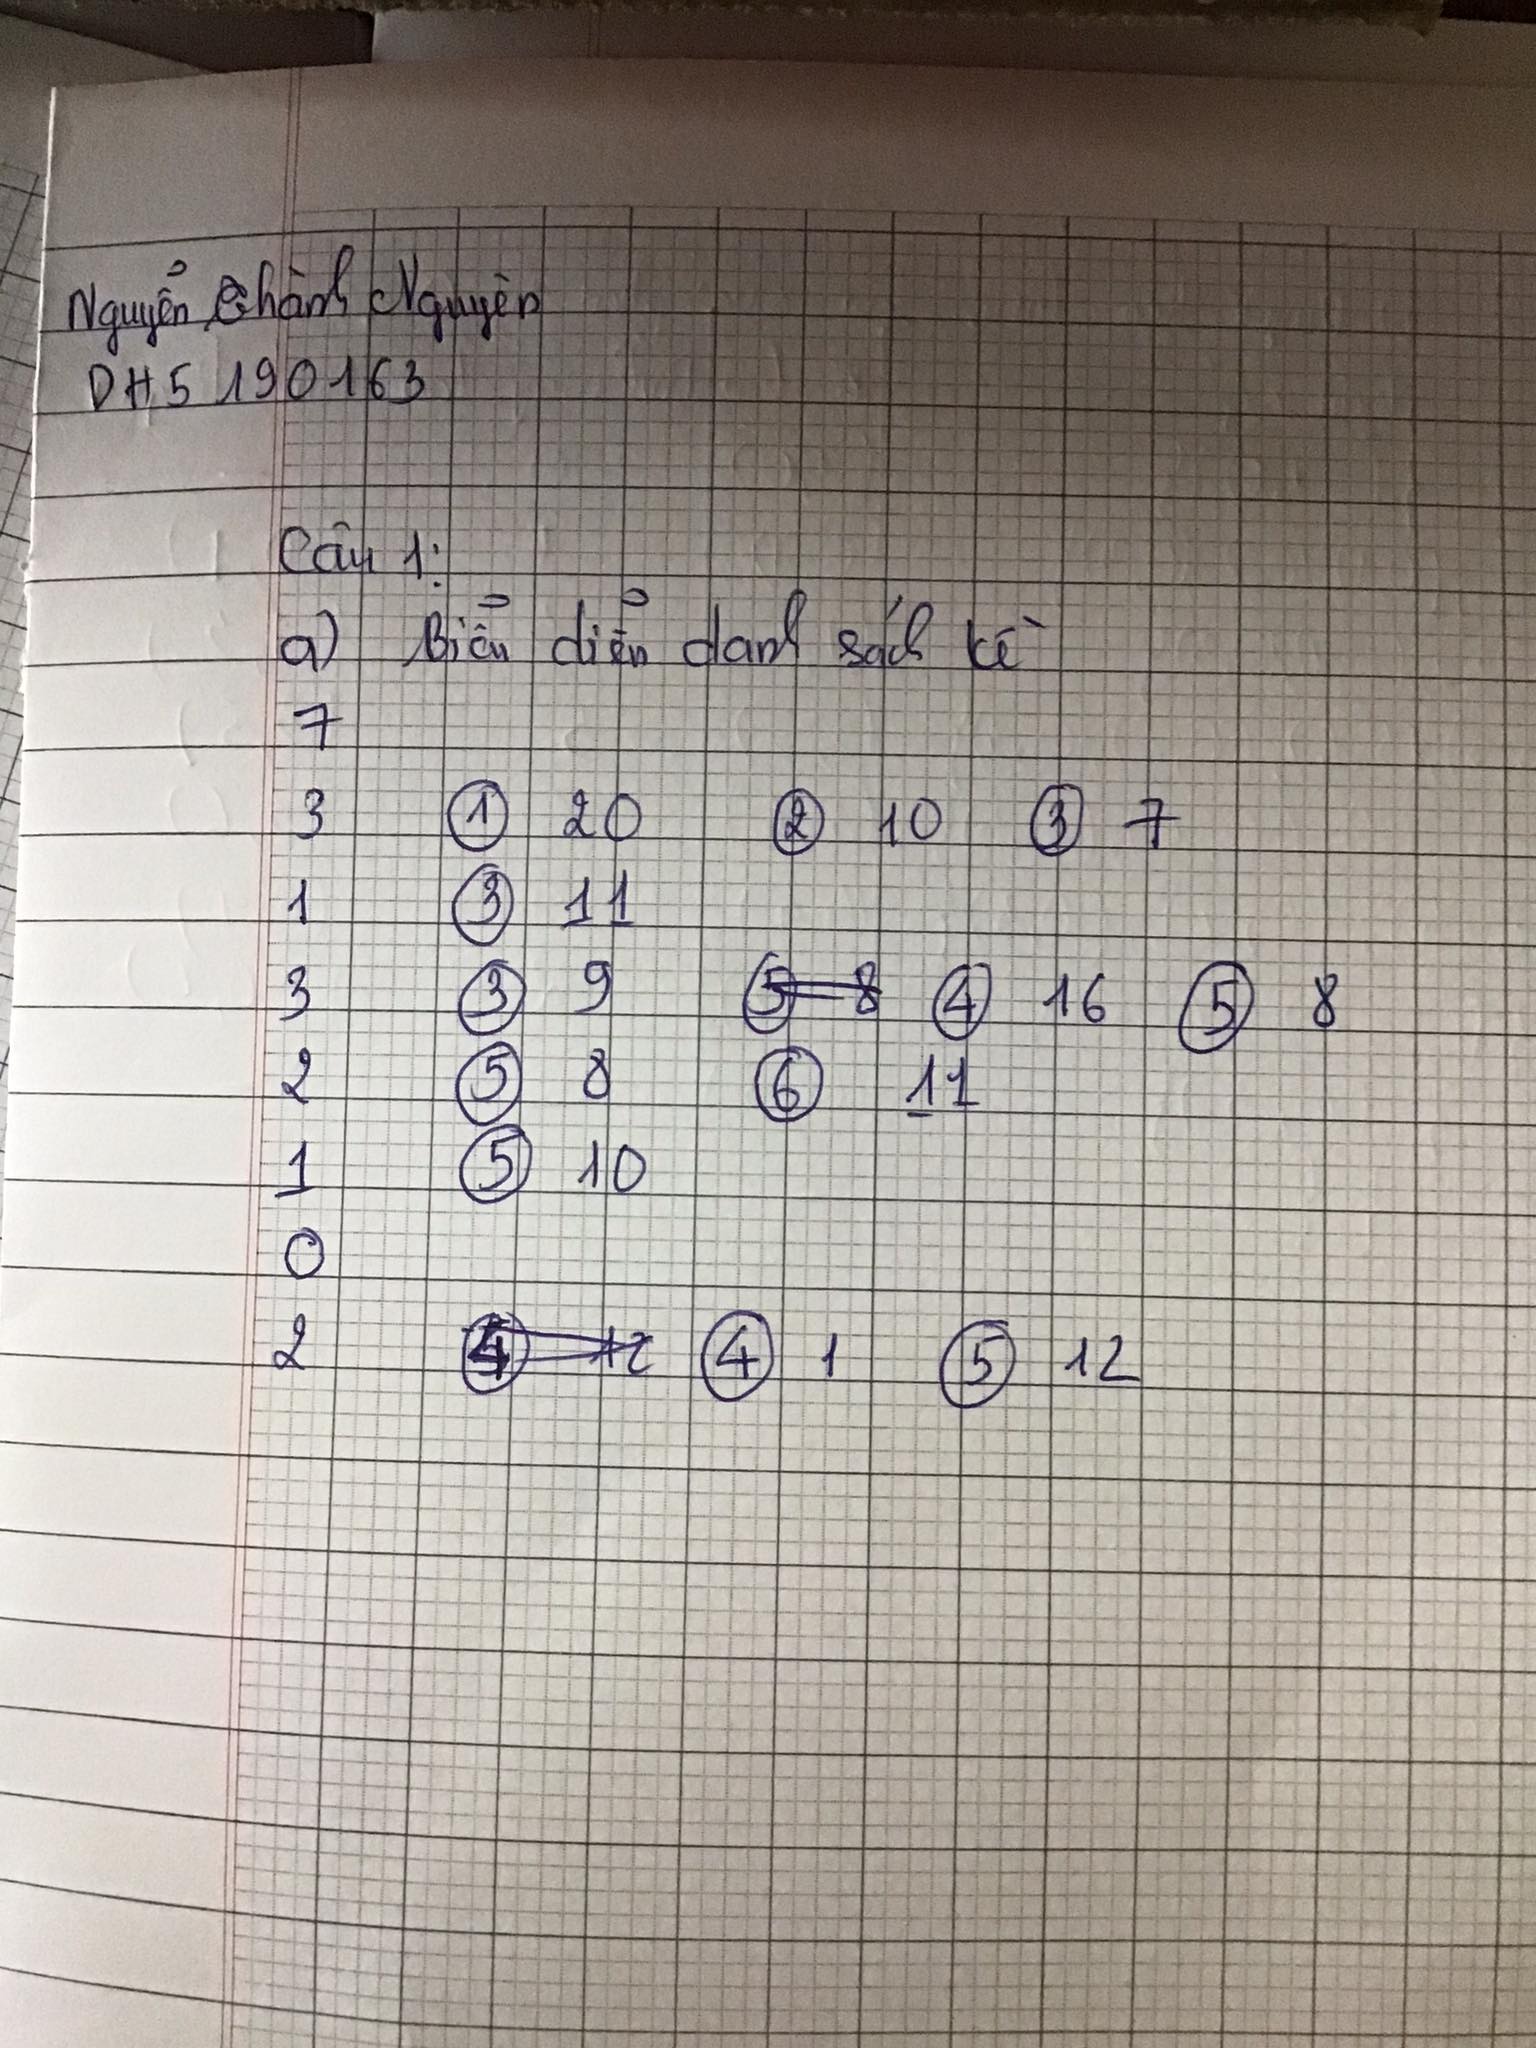 Nguyển Chành Nguyên
DH5190163
Câu 1:
a) Biển diển danh sách kề
7
3 ① 20 ② 10 ③ 7
1 ③ 11
3 ③ 9 ⑤ 8 ④ 16 ⑤ 8
2 ⑤ 8 ⑥ 11
1 ⑤ 10
0
2 ④ 12 ④ 1 ⑤ 12